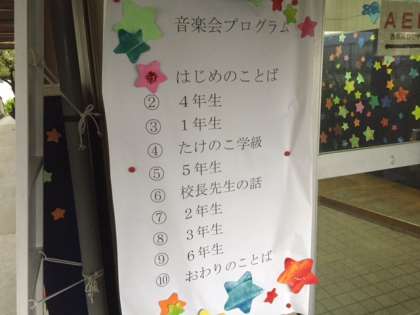 音楽会プログラム
はじめのことば
② 4年生
③ 1年生
④ たけのこ学級
⑤ 5年生
⑥ 校長先生の話
⑦ 2年生
⑧ 3年生
⑨ 6年生
⑩ おわりのことば
AED